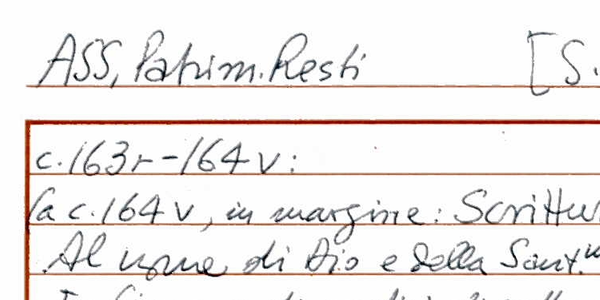 ASS, Patrim. Resti [S.
c. 163r - 164v:
(a c. 164v, in margine: Scrittu
Al nome di Dio e della Sant.